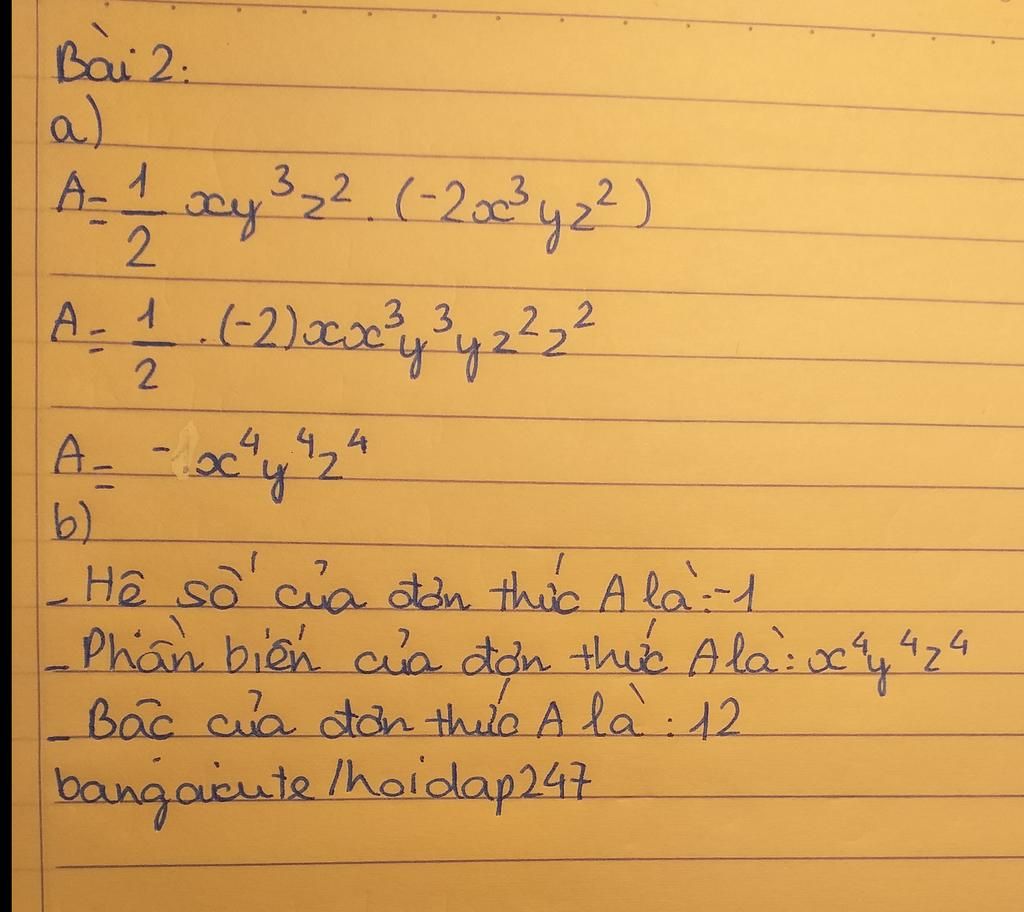 Bài 2:
a)
A = 1/2 xy³z² . (-2x³yz²)
A = 1/2 . (-2)xx³y³yz²z²
A = - x⁴y⁴z⁴
b)
- Hệ số của đơn thức A là: -1
- Phần biến của đơn thức A là: x⁴y⁴z⁴
- Bậc của đơn thức A là: 12
bangaicute/hoidap247